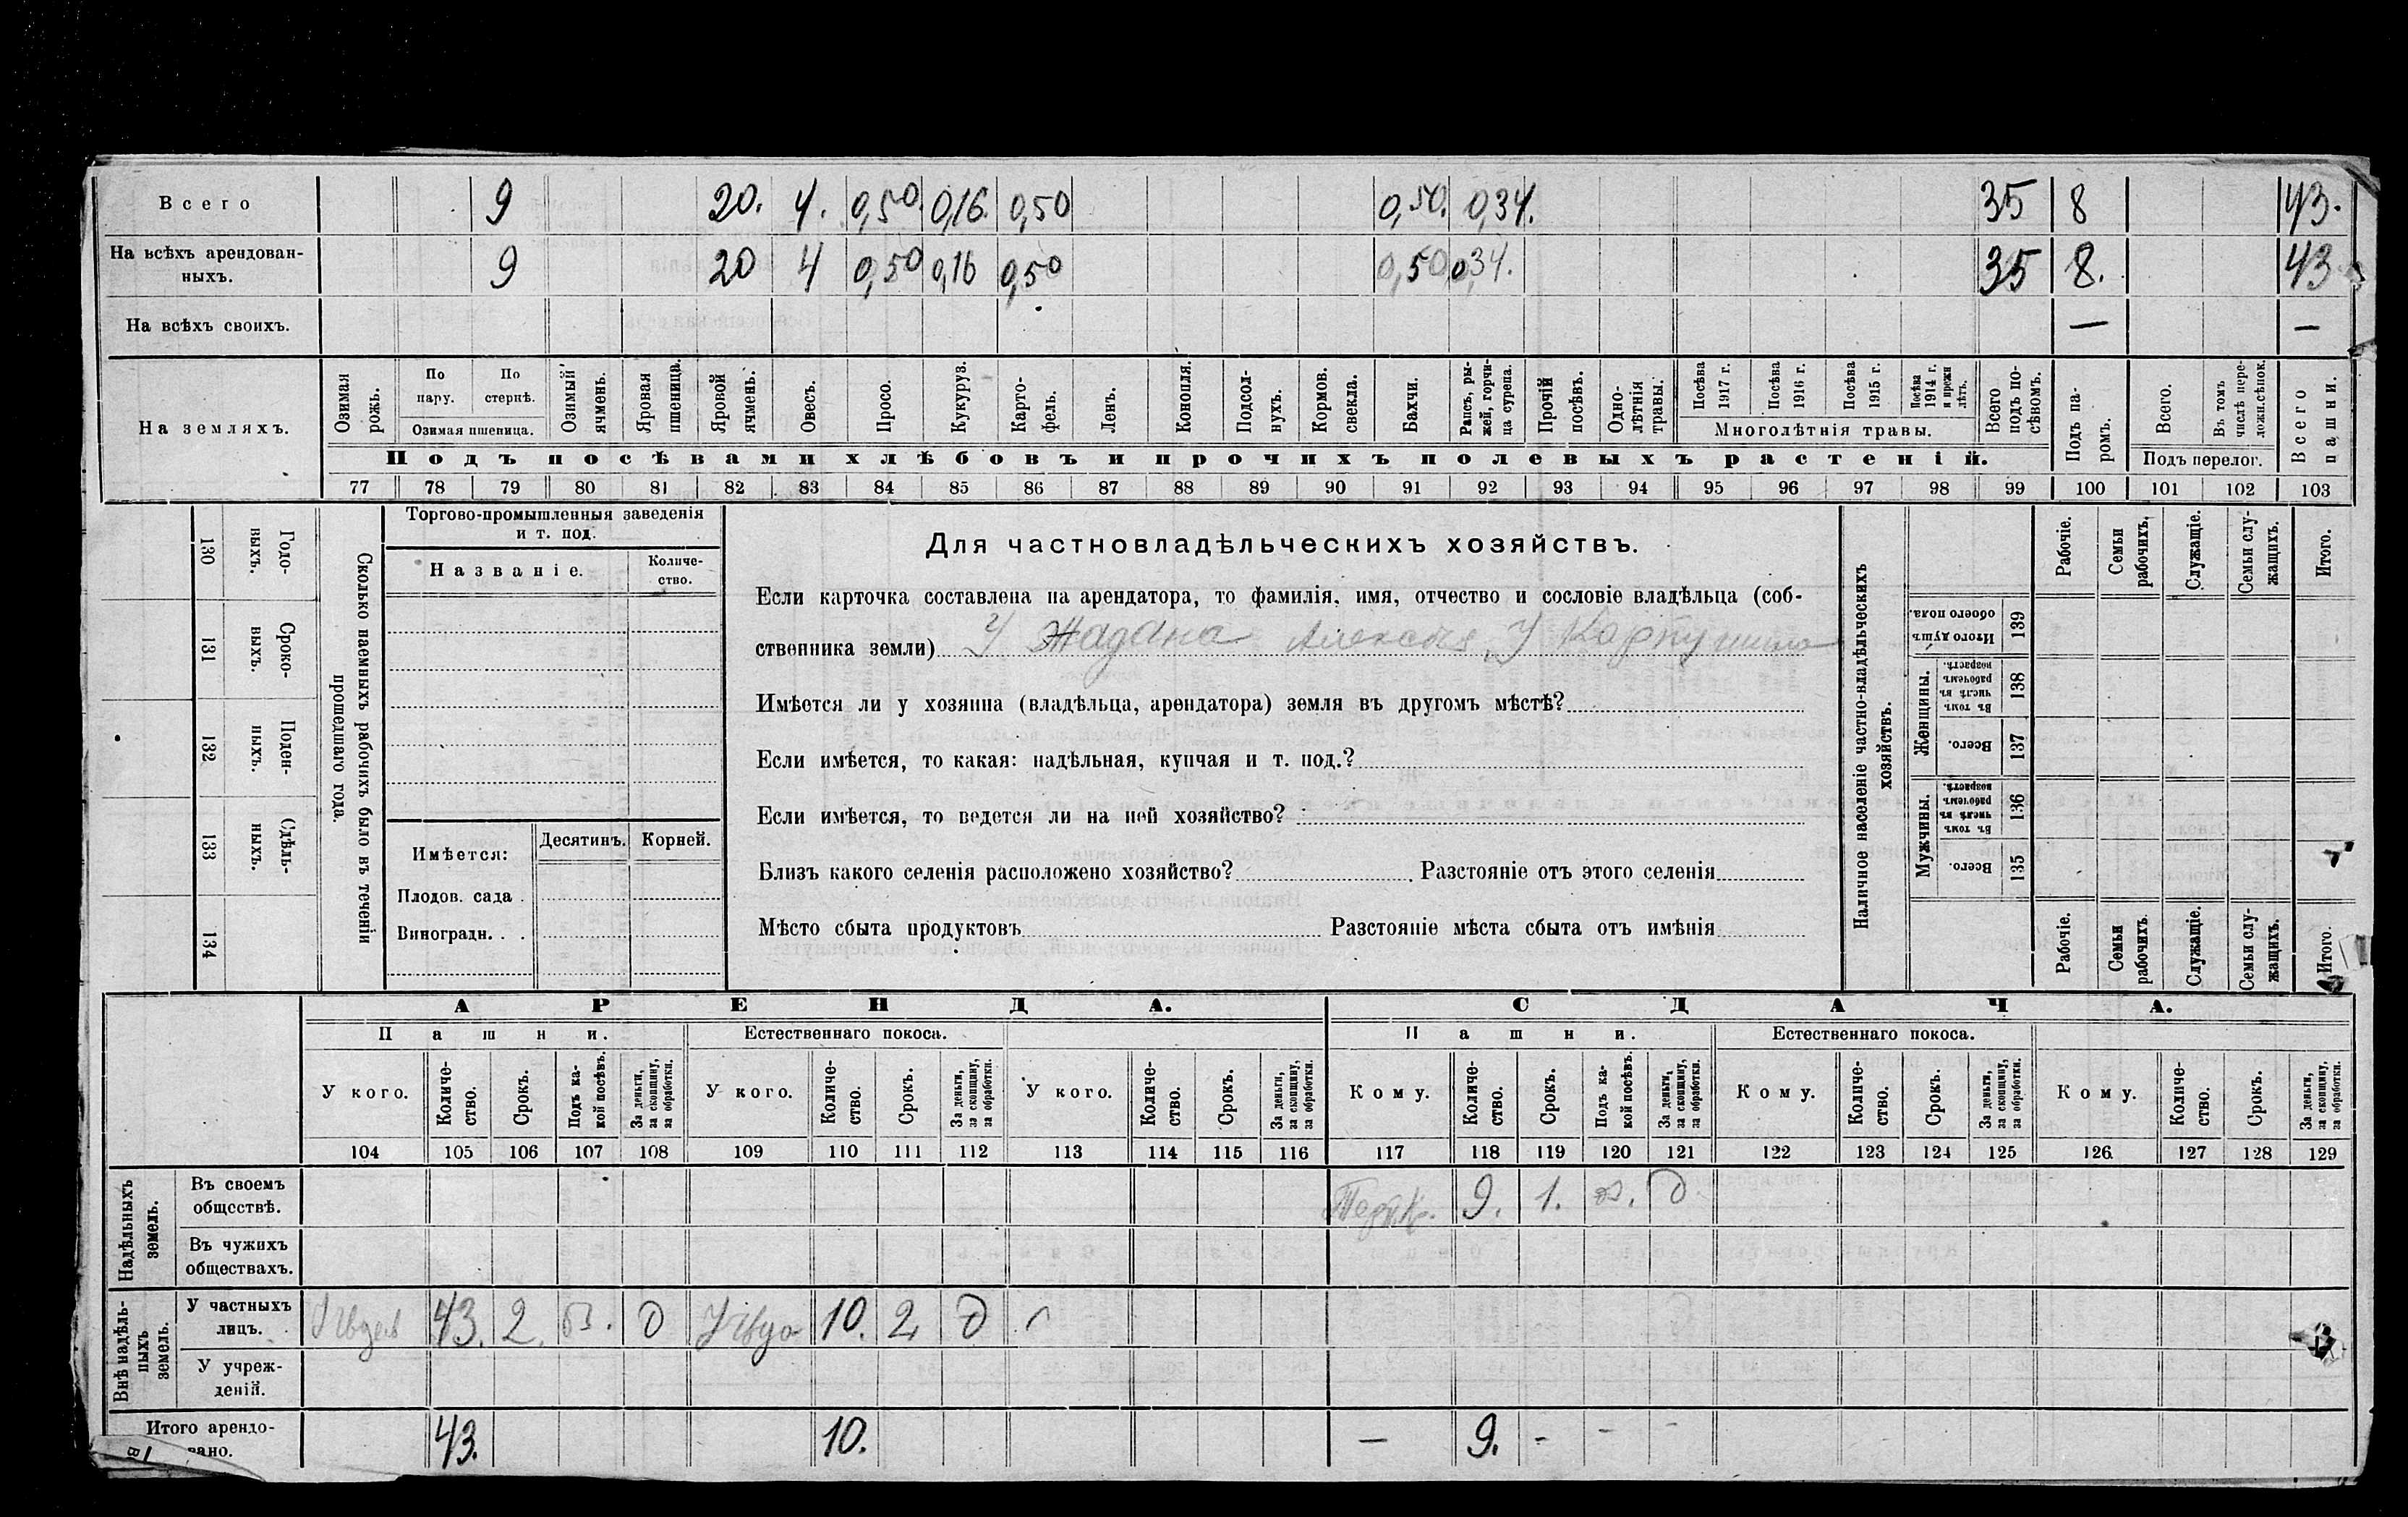 Всего 9 20. 4. 0,50 0,16. 0,50 0,50. 0,34. 35 8 43.
На всѣхъ арендован-
ныхъ. 9 20 4 0,50 0,16 0,50 0,50 0,34. 35 8. 43
На всѣхъ своихъ. — —
На земляхъ.
Озимая рожь.
По пару.
По стернѣ.
Озимая пшеница.
Озимый ячмень.
Яровая пшеница.
Яровой ячмень.
Овесъ.
Просо.
Кукуруз.
Карто-
фель.
Ленъ.
Конопля.
Подсол-
нухъ.
Кормов. свекла.
Бахчи.
Рапсъ, ры-
жей, горчи-
ца сурепа.
Прочій посѣвъ.
Одно-
лѣтнія травы.
Посѣва 1917 г.
Посѣва 1916 г.
Посѣва 1915 г.
Посѣва 1914 г. и прежн лѣтъ.
Многолѣтнія травы.
Всего подъ по-
сѣвомъ.
Подъ па-
ромъ.
Всего.
Въ томъ числѣ пере-
ложн.сѣнок.
Подъ перелог.
Всего пашни.
Подъ посѣвами хлѣбовъ и прочихъ полевыхъ растеній.
77 78 79 80 81 82 83 84 85 86 87 88 89 90 91 92 93 94 95 96 97 98 99 100 101 102 103
130 Годо-
выхъ.
131 Сроко-
выхъ.
132 Поден-
ныхъ.
133 Сдѣль-
ныхъ.
134
Сколько наемныхъ рабочихъ было въ теченіи
прошедшаго года.
Торгово-промышленныя заведенія
и т. под.
Названіе.
Количе-
ство.
Имѣется: Десятинъ. Корней.
Плодов. сада .
Виноградн. . .
Для частновладѣльческихъ хозяйствъ.
Если карточка составлена на арендатора, то фамилія, имя, отчество и сословіе владѣльца (соб-
ственника земли) У Жадана Алексѣя, У Карпушина
Имѣется ли у хозяина (владѣльца, арендатора) земля въ другомъ мѣстѣ?
Если имѣется, то какая: надѣльная, купчая и т. под.?
Если имѣется, то ведется ли на ней хозяйство?
Близъ какого селенія расположено хозяйство? Разстояніе отъ этого селенія
Мѣсто сбыта продуктовъ Разстояніе мѣста сбыта отъ имѣнія
Наличное населеніе частно-владѣльческихъ
хозяйствъ.
Рабочіе.
Семьи рабочихъ.
Служащіе.
Семьи слу-
жащихъ.
Итого.
Итого душъ обоего пола. 139
Женщины.
Въ томъ числѣ въ рабочемъ возрастѣ. 138
Всего. 137
Мужчины.
Въ томъ числѣ въ рабочемъ возрастѣ. 136
Всего. 135
Рабочіе.
Семьи рабочихъ.
Служащіе.
Семьи слу-
жащихъ.
Итого.
АРЕНДА. СДАЧА.
Пашни. Естественнаго покоса. Пашни. Естественнаго покоса.
У кого.
Количе-
ство.
Срокъ.
Подъ ка-
кой посѣвъ.
За деньги, за скопщину, за обработки.
У кого.
Количе-
ство.
Срокъ.
За деньги, за скопщину, за обработки.
У кого.
Количе-
ство.
Срокъ.
За деньги, за скопщину, за обработки.
Кому.
Количе-
ство.
Срокъ.
Подъ ка-
кой посѣвъ.
За деньги, за скопщину, за обработки.
Кому.
Количе-
ство.
Срокъ.
За деньги, за скопщину, за обработки.
Кому.
Количе-
ство.
Срокъ.
За деньги, за скопщину, за обработки.
104 105 106 107 108 109 110 111 112 113 114 115 116 117 118 119 120 121 122 123 124 125 126 127 128 129
Надѣльныхъ земель.
Въ своемъ
обществѣ. 9. 1. д.
Въ чужихъ
обществахъ.
Внѣ надѣль-
ныхъ земель.
У частныхъ
лицъ. 43. 2. д 10. 2 д
У учреж-
деній.
Итого арендо-
вано. 43. 10. — 9. - - -